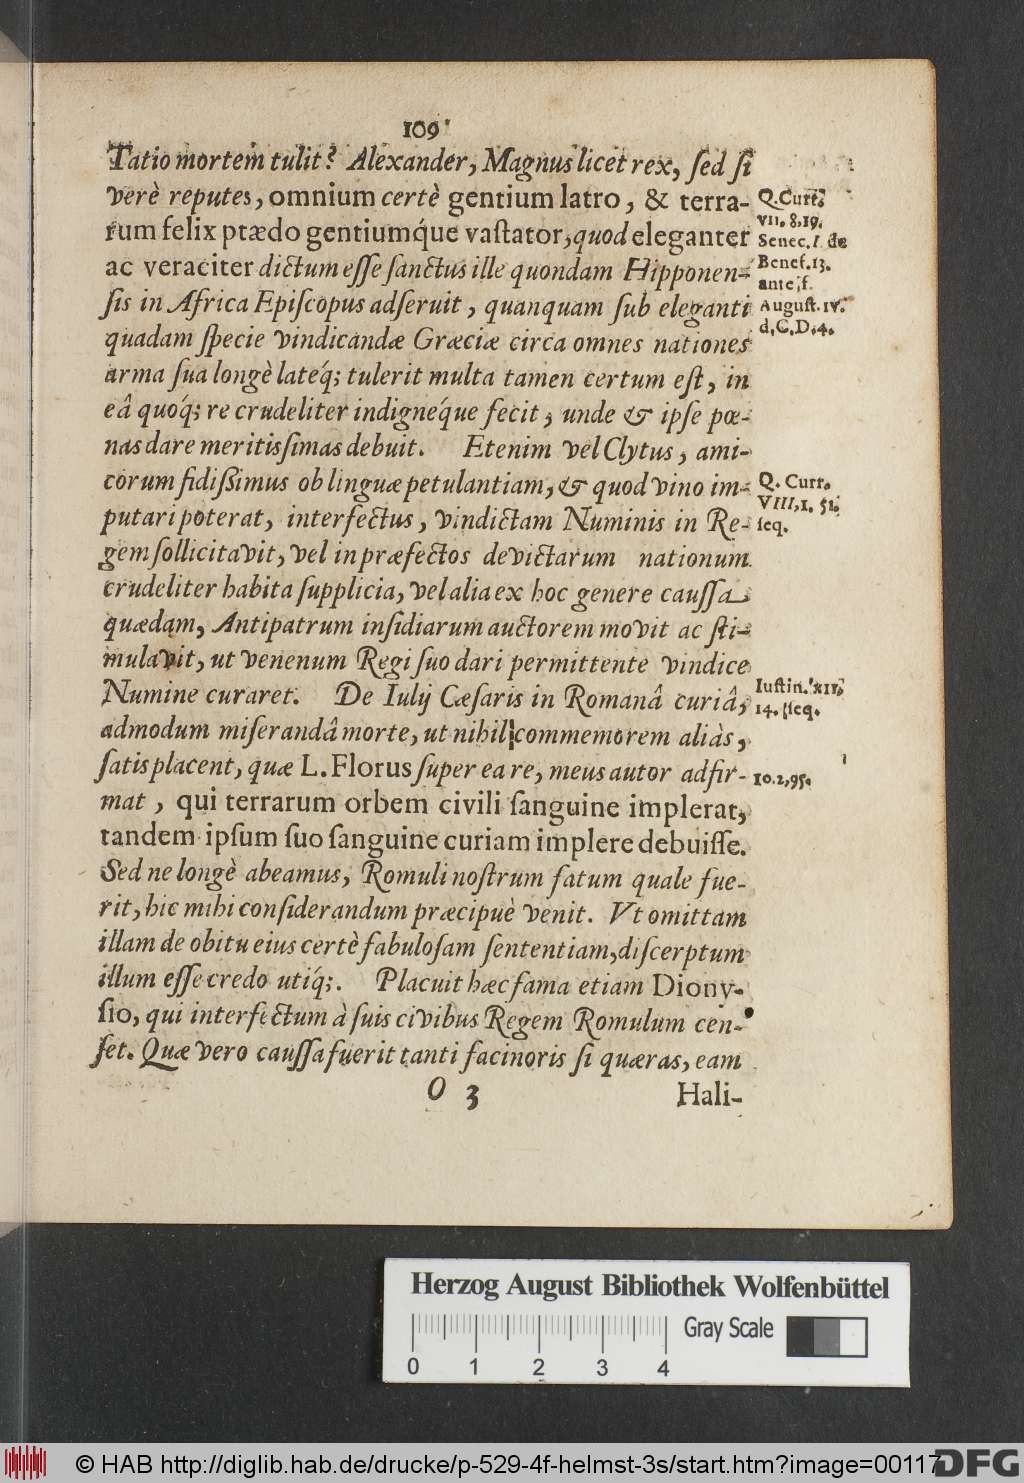 109
Tatio mortem tulit? Alexander, Magnus licet rex, sed si
verè reputes, omnium certè gentium latro, & terra-
rum felix prædo gentiumq́ue vastator, quod eleganter
ac veraciter dictum esse sanctus ille quondam Hipponen-
sis in Africa Episcopus adseruit, quanquam sub eleganti
quadam specie vindicandæ Græciæ circa omnes nationes
arma sua longè lateq́; tulerit multa tamen certum est, in
eâ quoq́; re crudeliter indigneq́ue fecit, unde & ipse pœ-
nas dare meritissimas debuit. Etenim vel Clytus, ami-
corum fidißimus ob linguæ petulantiam, & quod vino im-
putari poterat, interfectus, vindictam Numinis in Re-
gem sollicitavit, vel in præfectos devictarum nationum
crudeliter habita supplicia, vel alia ex hoc genere caussa
quædam, Antipatrum insidiarum auctorem movit ac sti-
mulavit, ut venenum Regi suo dari permittente vindice
Numine curaret. De Iulij Cæsaris in Romanâ curiâ,
admodum miserandâ morte, ut nihil commemorem aliàs,
satis placent, quæ L. Florus super ea re, meus autor adfir-
mat, qui terrarum orbem civili sanguine implerat,
tandem ipsum suo sanguine curiam implere debuisse.
Sed ne longè abeamus, Romuli nostrum fatum quale fue-
rit, hic mihi considerandum præcipuè venit. Vt omittam
illam de obitu eius certè fabulosam sententiam, discerptum
illum esse credo utiq́;. Placuit hæc fama etiam Diony-
sio, qui interfectum à suis civibus Regem Romulum cen-
set. Quæ vero caussa fuerit tanti facinoris si quæras, eam
O 3 Hali-
Q. Curt.
VII. 8, 19.
Senec. l. de
Benef. 13.
ante f.
August. IV.
d. C. D. 4.
Q. Curr.
VIII, 1. 51.
seq.
Iustin. XII,
14. seq.
10. 2, 95.
Herzog August Bibliothek Wolfenbüttel
Gray Scale
0 1 2 3 4
© HAB http://diglib.hab.de/drucke/p-529-4f-helmst-3s/start.htm?image=00117
DFG